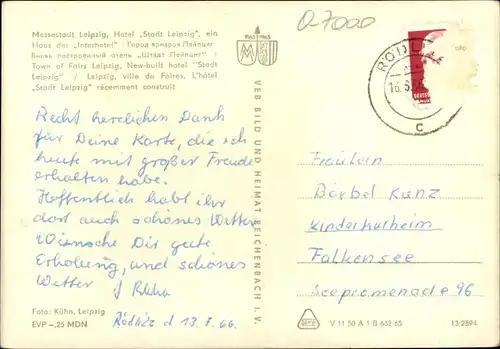 Messestadt Leipzig, Hotel „Stadt Leipzig", ein
Haus der „Interhotel" / Город ярмарок Лейпциг
Вновь построенный отель „Штадт Лейпциг" /
Town of Fairs Leipzig, New-built hotel "Stadt
Leipzig" / Leipzig, ville de Foires. L'hôtel
"Stadt Leipzig" récemment construit
0-7000
Recht herzlichen Dank
für Deine Karte, die ich
heute mit großer Freude
erhalten habe.
Hoffentlich habt ihr
dort auch schönes Wetter
Wünsche Dir gute
Erholung, und schönes
Wetter
Foto: Kühn, Leipzig
EVP –,25 MDN
Rödlitz d 13. 7. 66.
VEB BILD UND HEIMAT REICHENBACH I. V.
RÖDL
c
Fräulein
Bärbel Kunz
Kinderkurheim
Falkensee
Seepromenade 96
V 11 50 A 1/B 652/65
13/2894